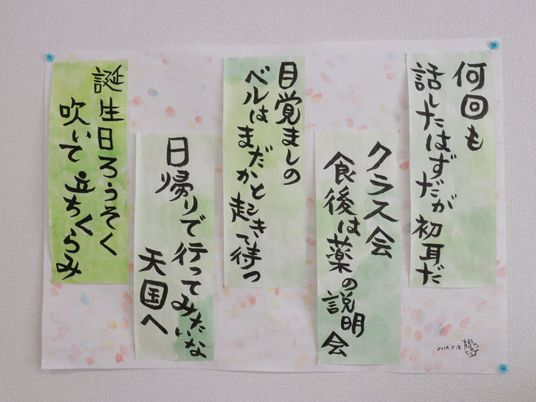 何回も
話したはずだが 初耳だ
クラス会
食後は薬の説明会
目覚ましの
ベルはまだかと起きて待つ
日帰りで行ってみたいな
天国へ
誕生日ろうそく
吹いて 立ちくらみ